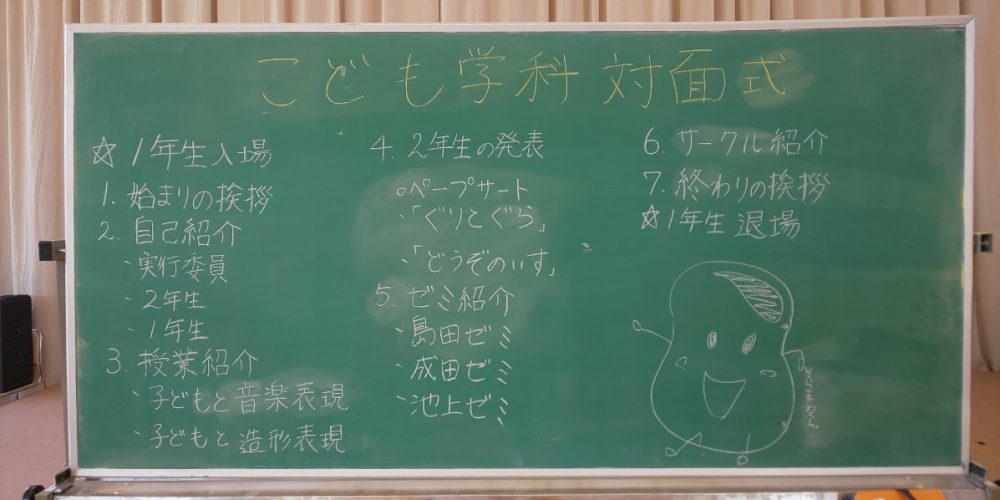 こども学科 対面式
☆ 1年生入場
1. 始まりの挨拶
2. 自己紹介
・実行委員
・2年生
・1年生
3. 授業紹介
・子どもと音楽表現
・子どもと造形表現
4. 2年生の発表
○ペープサート
・「ぐりとぐら」
・「どうぞのいす」
5. ゼミ紹介
・島田ゼミ
・成田ゼミ
・池上ゼミ
6. サークル紹介
7. 終わりの挨拶
☆1年生 退場
そらまめくん